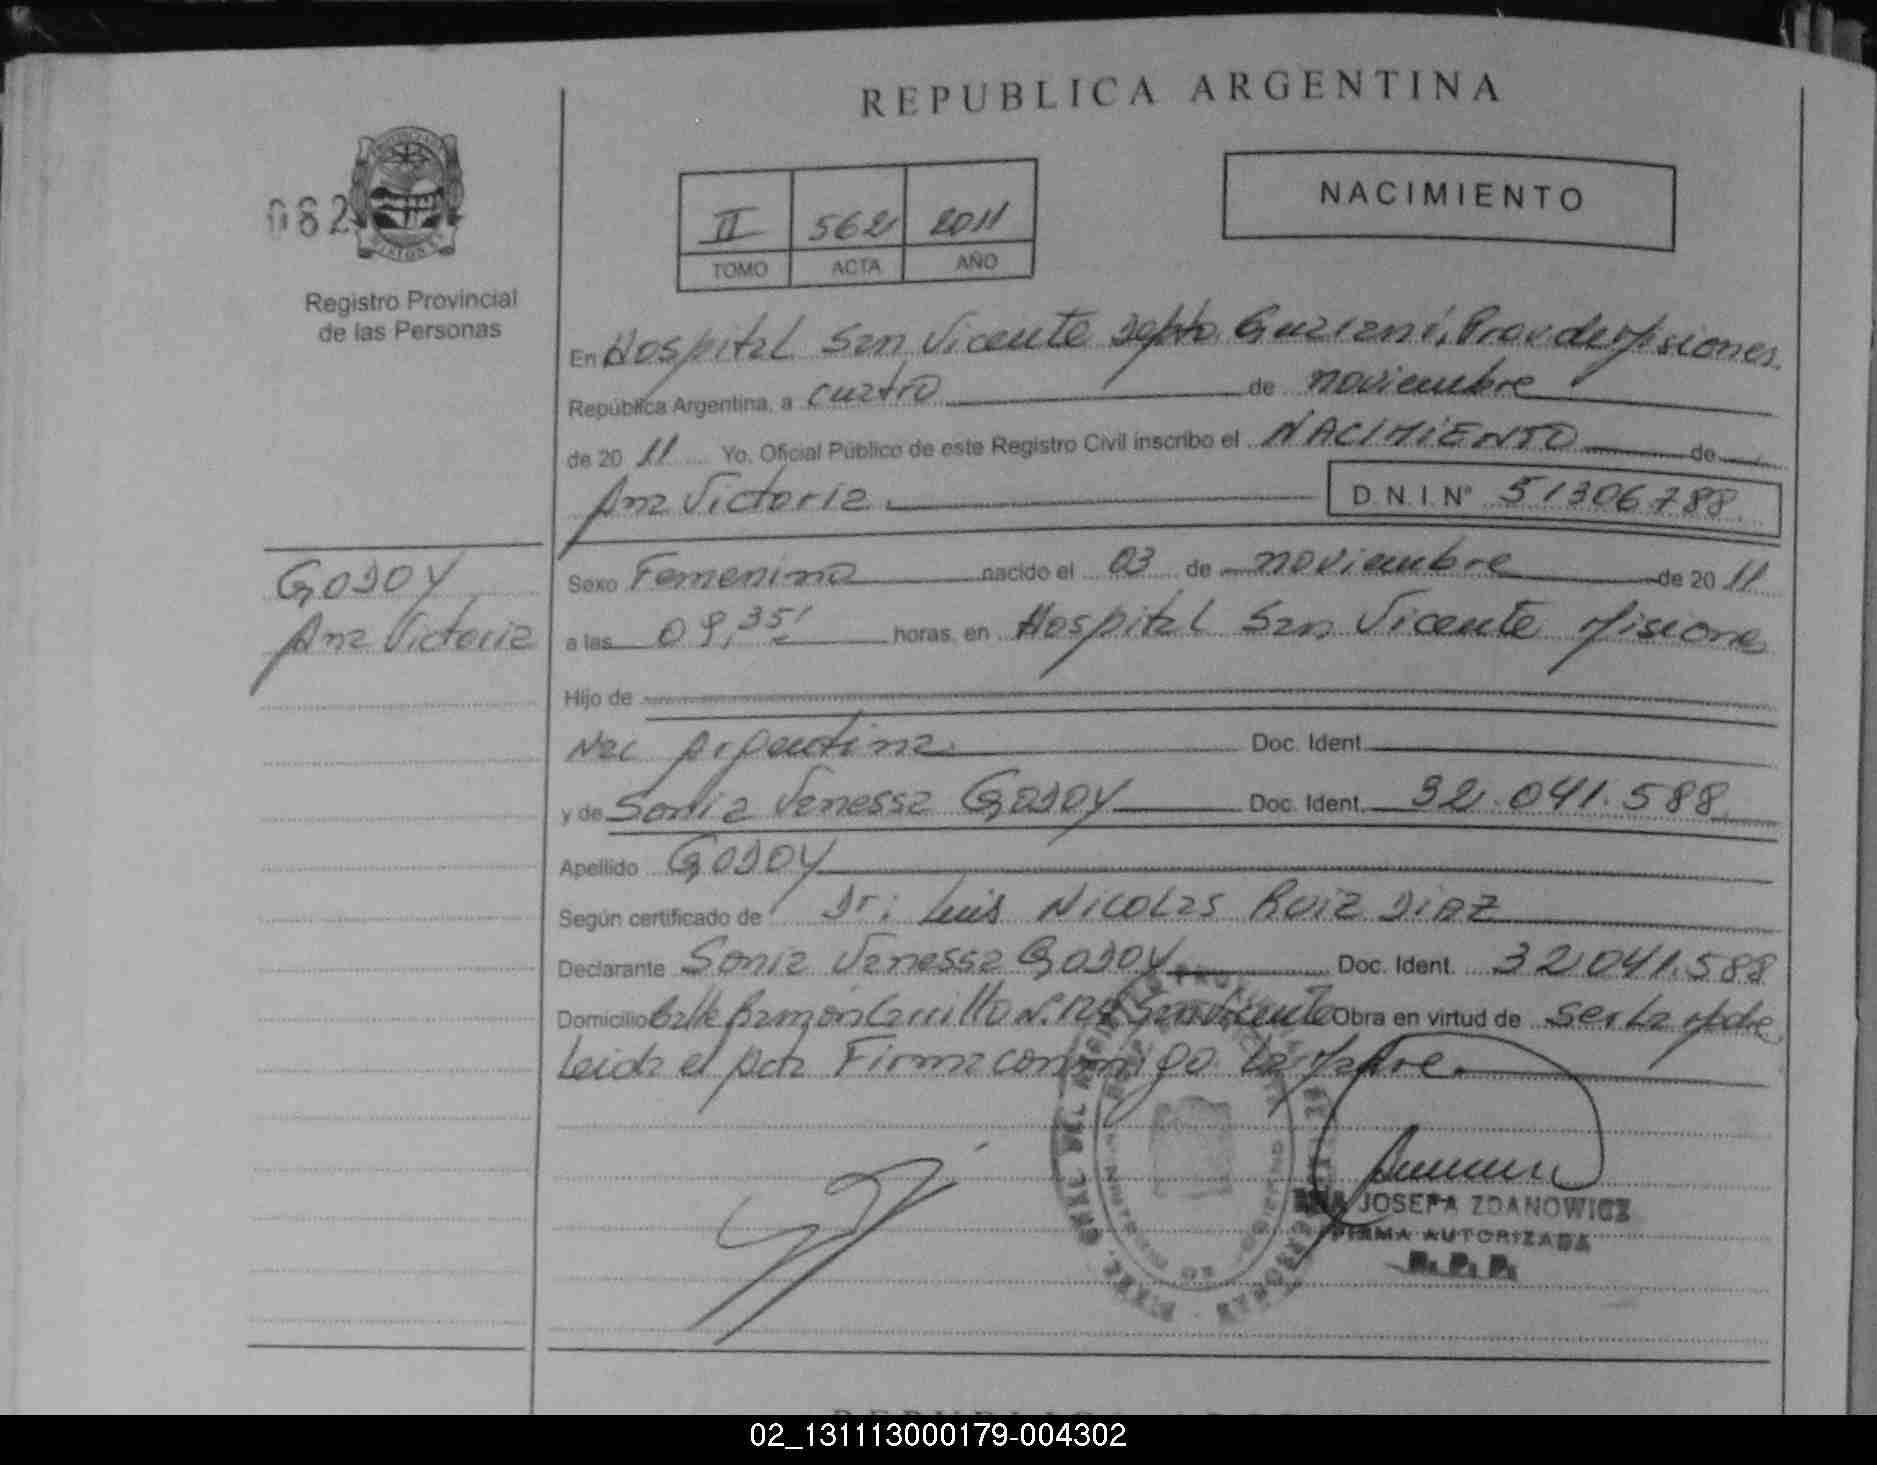 REPUBLICA ARGENTINA
NACIMIENTO
082
II 562 2011
TOMO ACTA AÑO
Registro Provincial
de las Personas
En Hospital San Vicente Depto Guaraní, Prov de Misiones.
República Argentina, a cuatro de noviembre
de 20 11 Yo, Oficial Público de este Registro Civil inscribo el NACIMIENTO de
Ana Victoria D.N.I. Nº 51306788
GODOY
Ana Victoria
Sexo Femenino nacido el 03 de noviembre de 20 11
a las 09,35' horas, en Hospital San Vicente Misiones
Hijo de
Nac Argentina Doc. Ident.
y de Sonia Vanessa GODOY Doc. Ident. 32.041.588
Apellido GODOY
Según certificado de Dr: Luis Nicolas Ruiz Diaz
Declarante Sonia Vanessa GODOY Doc. Ident. 32041.588
Domicilio Calle Ramón Carrillo San Vicente Obra en virtud de ser La Madre
Leida el Acta Firma conmigo La Madre.
JOSEFA ZDANOWICZ
FIRMA AUTORIZADA
R.P.P.
02_131113000179-004302